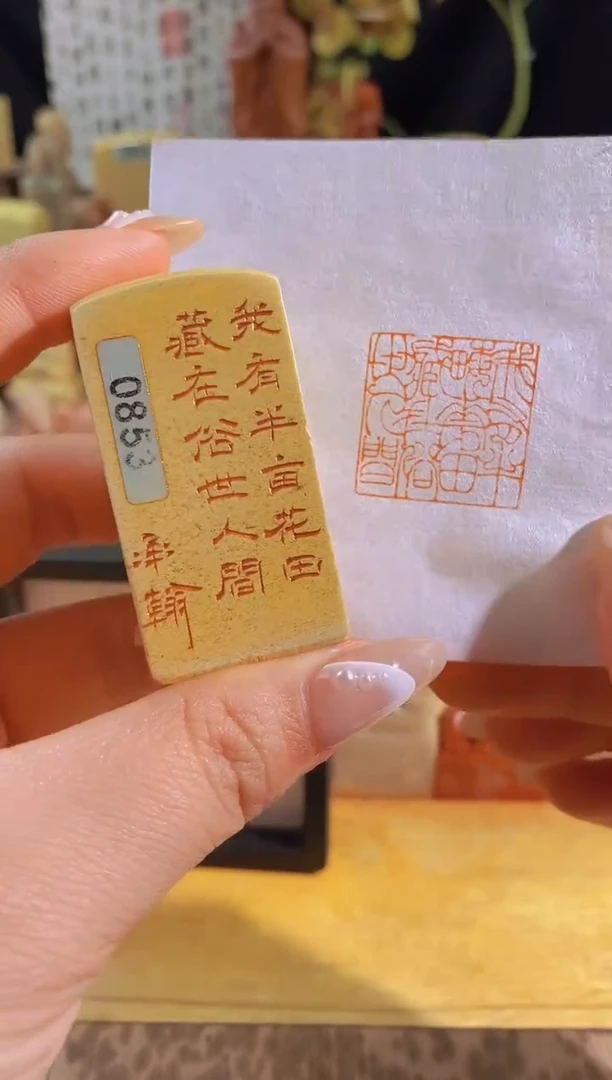 我有半亩花田
藏在俗世人間
承翰
0853
我有半畝花田
藏在俗世人間